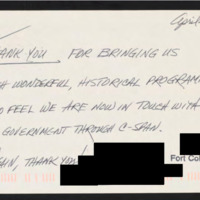 April
ANK YOU FOR BRINGING US
H WONDERFUL, HISTORICAL PROGRAM
O FEEL WE ARE NOW IN TOUCH WITH
GOVERNMENT THROUGH C-SPAN.
AIN, THANK YOU!
Fort Col